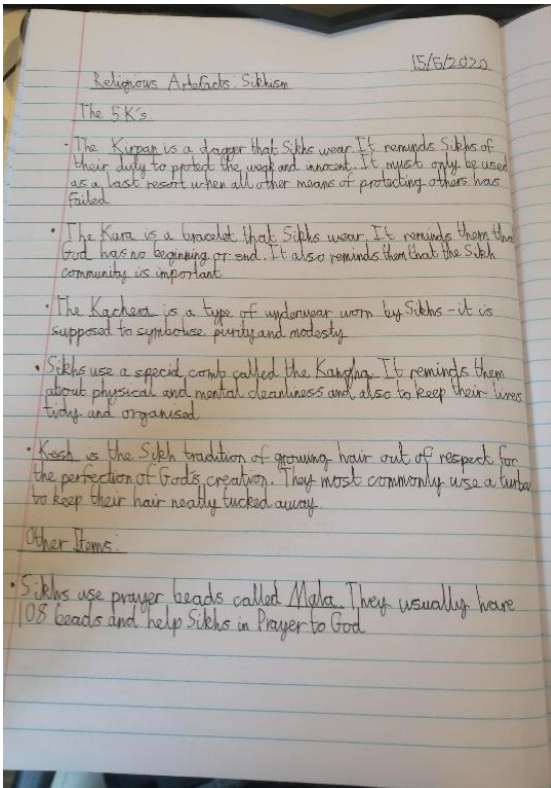 15/6/2020
Religious Artefacts: Sikhism
The 5 K's.
· The Kirpan is a dagger that Sikhs wear. It reminds Sikhs of
their duty to protect the weak and innocent. It must only be used
as a last resort when all other means of protecting others has
failed
· The Kara is a bracelet that Sikhs wear. It reminds them tha
God has no beginning or end. It also reminds them that the Sikh
community is important
· The Kachera is a type of underwear worn by Sikhs - it is
supposed to symbolise purity and modesty
· Sikhs use a special comb called the Kangha. It reminds them
about physical and mental cleanliness and also to keep their lives
tidy and organised
· Kesh is the Sikh tradition of growing hair out of respect for
the perfection of God's creation. They most commonly use a turba
to keep their hair neatly tucked away.
Other Items:
· Sikhs use prayer beads called Mala. They usually have
108 beads and help Sikhs in Prayer to God